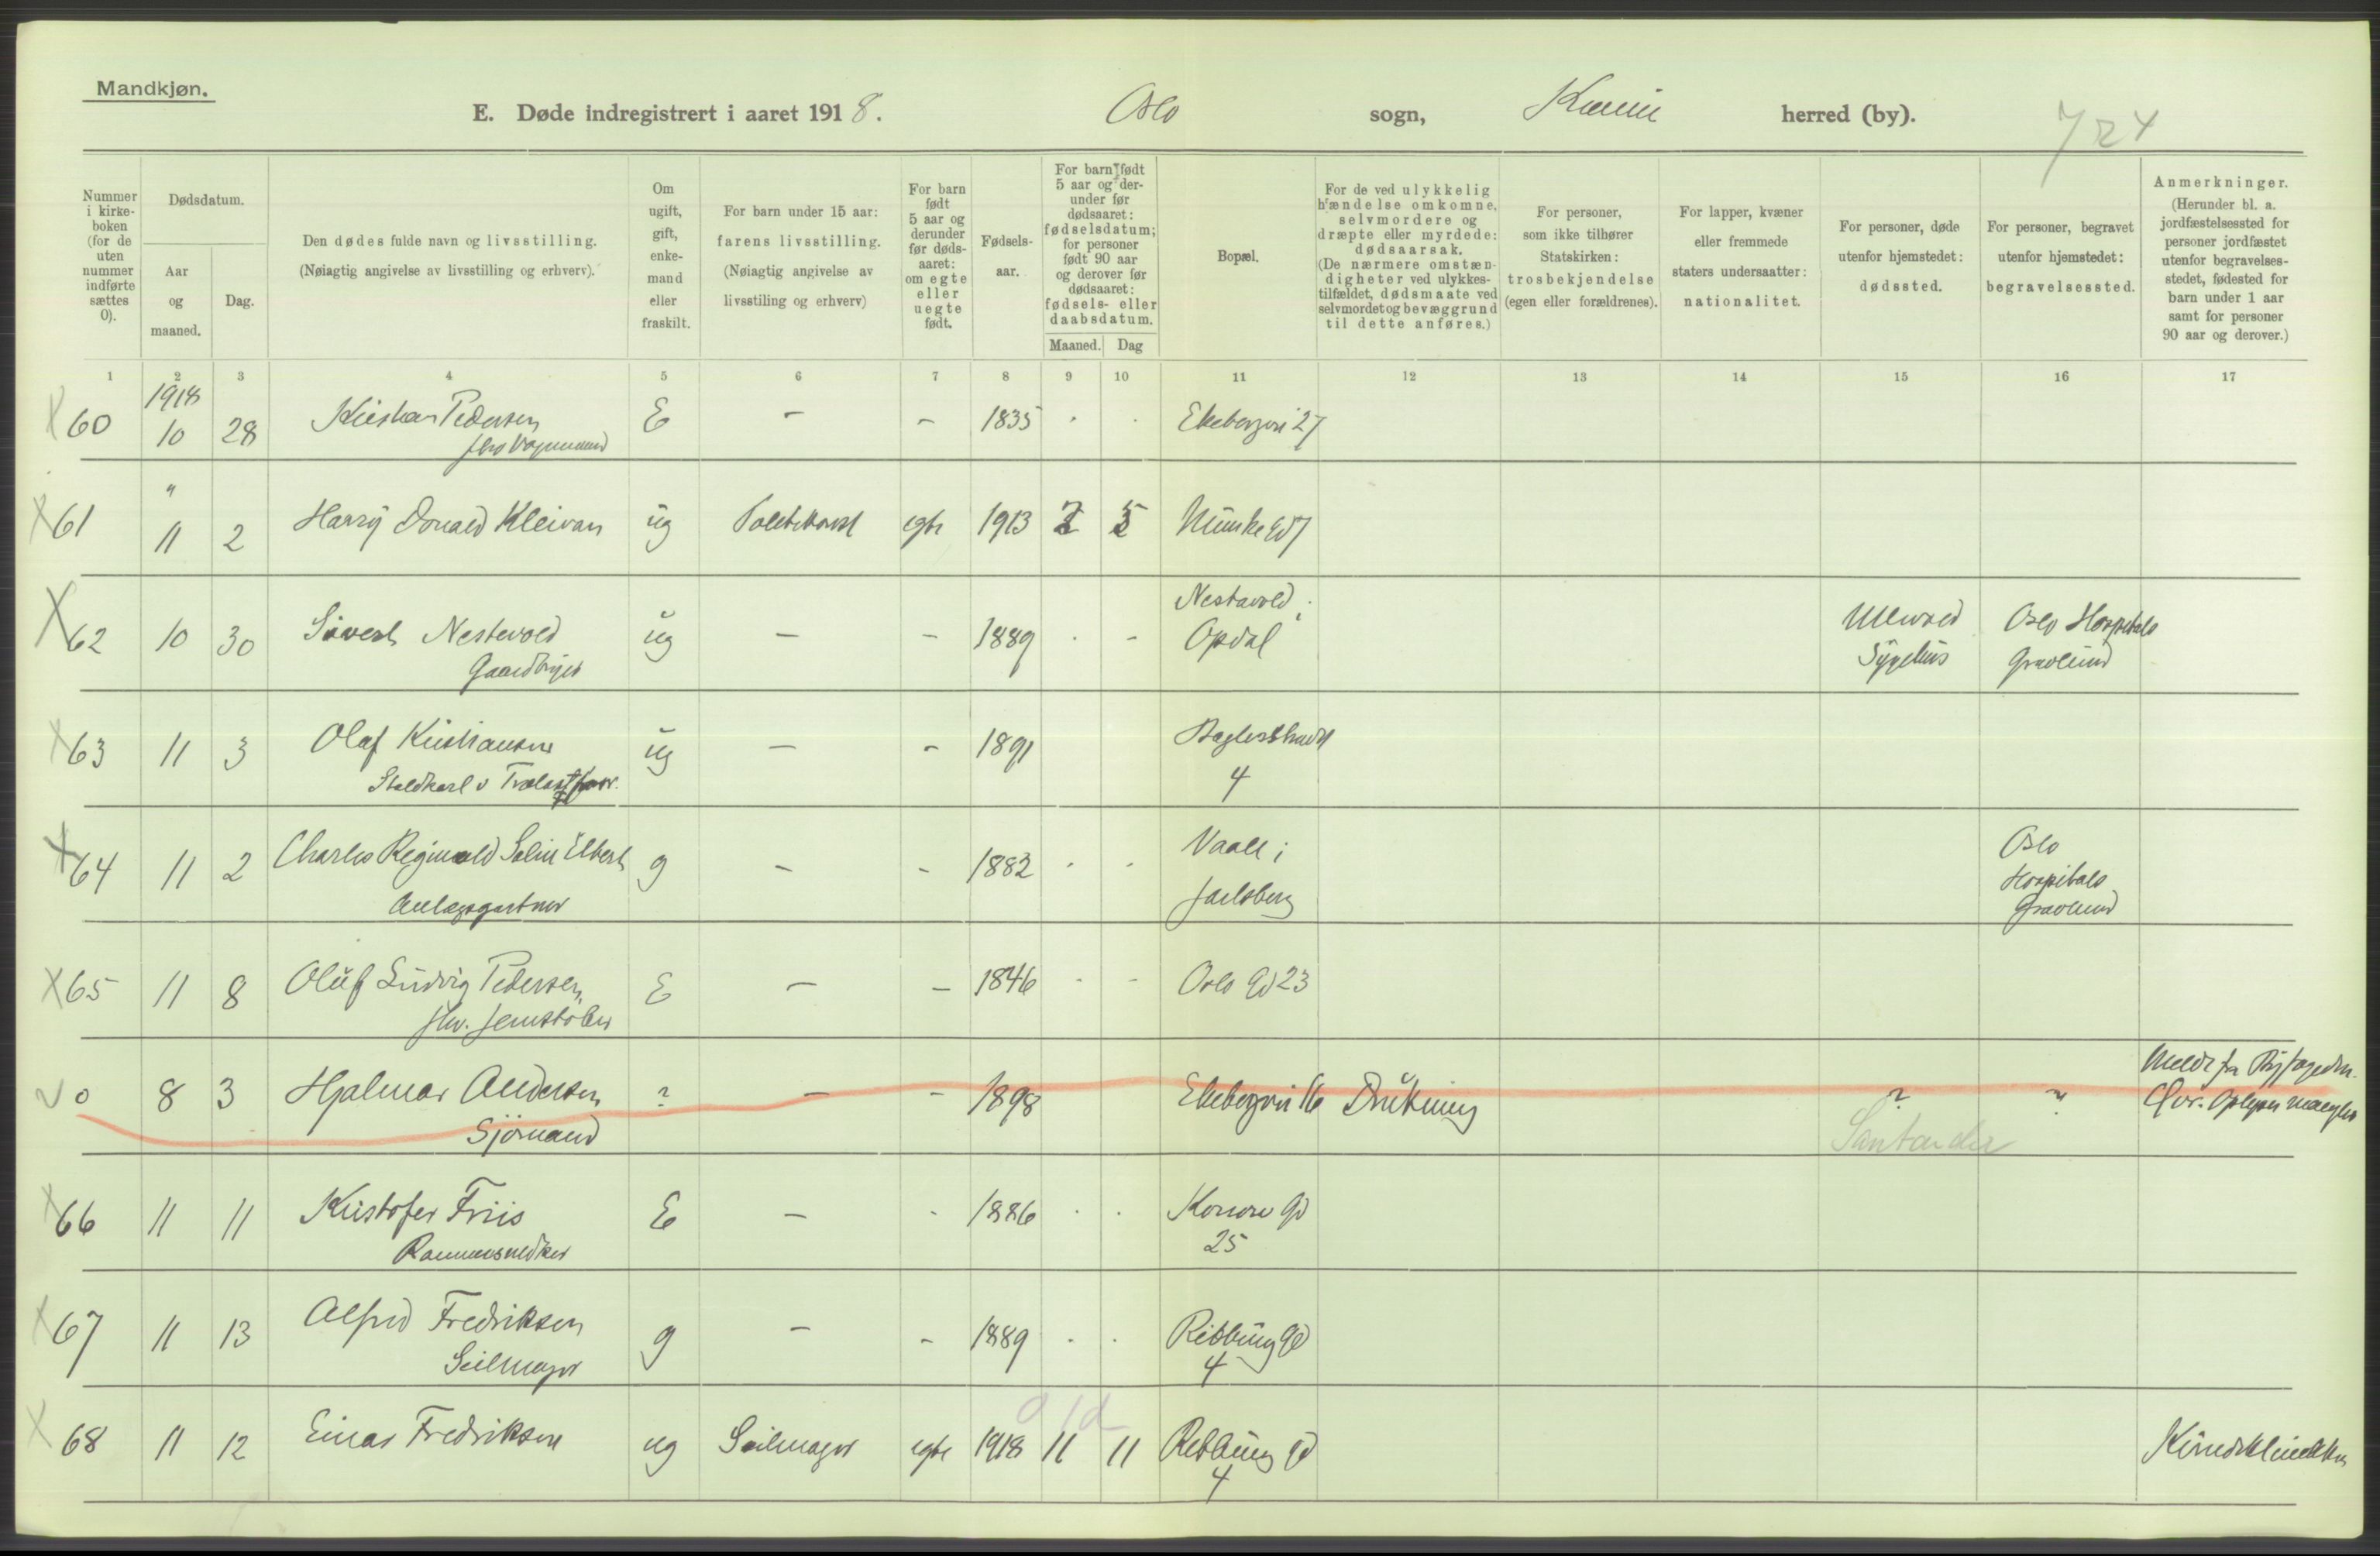 Mandkjøn.
E. Døde indregistrert i aaret 1918. Oslo sogn, herred (by). 724
Nummer i kirke-boken (for de uten nummer indførte sættes 0).
Dødsdatum.
Aar og maaned.
Dag.
Den dødes fulde navn og livsstilling.
(Nøiagtig angivelse av livsstilling og erhverv).
Om ugift, gift, enke-mand eller fraskilt.
For barn under 15 aar: farens livsstilling. (Nøiagtig angivelse av livsstiling og erhverv)
For barn født 5 aar og derunder før døds-aaret: om egte eller uegte født.
Fødsels-aar.
For barn født 5 aar og der-under før dødsaaret: fødselsdatum; for personer født 90 aar og derover før dødsaaret: fødsels- eller daabsdatum.
Maaned. Dag
Bopæl.
For de ved ulykkelig hændelse omkomne, selvmordere og dræpte eller myrdede: dødsaarsak. (De nærmere omstæn-digheter ved ulykkes-tilfældet, dødsmaate ved selvmordet og bevæggrund til dette anføres.)
For personer, som ikke tilhører Statskirken: trosbekjendelse (egen eller forældrenes).
For lapper, kvæner eller fremmede staters undersaatter: nationalitet.
For personer, døde utenfor hjemstedet: dødssted.
For personer, begravet utenfor hjemstedet: begravelsessted.
Anmerkninger. (Herunder bl. a. jordfæstelsessted for personer jordfæstet utenfor begravelses-stedet, fødested for barn under 1 aar samt for personer 90 aar og derover.)
1 2 3 4 5 6 7 8 9 10 11 12 13 14 15 16 17
1918
X 60 10 28 Kristian Pedersen E - - 1835 . . Ekebergvei 27
"
X 61 11 2 Harry Donald Kleivan ug egte 1913 2 5 Munke Gd 7
X 62 10 30 Sivert Nestevold ug - - 1889 . - Nestavold i Opdal Ullevold Sygehus Oslo Hospitals Gravlund
Gaardbruger
X 63 11 3 Olaf Kristiansen ug - - 1891 4
Staldkarl v
X 64 11 2 Charles Reginald Elbert g - - 1882 . . Vaale i Jarlsberg Oslo Hospitals Gravlund
Anlægsgartner
X 65 11 8 Oluf Ludvig Pedersen E - - 1846 - - Oslo Gd 23
fhv. Jernstøber
0 8 3 Hjalmar Andersen ? - - 1898 Ekebergvei 16 Drukning ? ?
Sjömand Santander
X 66 11 11 Kristofer Friis E - . 1886 . . Gd 25
Rammesnedker
X 67 11 13 Alfred Fredriksen g - - 1889 . . Gd 4
Seilmager
X 68 11 12 Einar Fredriksen ug Seilmager egte 1918 11 11 Gd 4 Kvindeklinikken